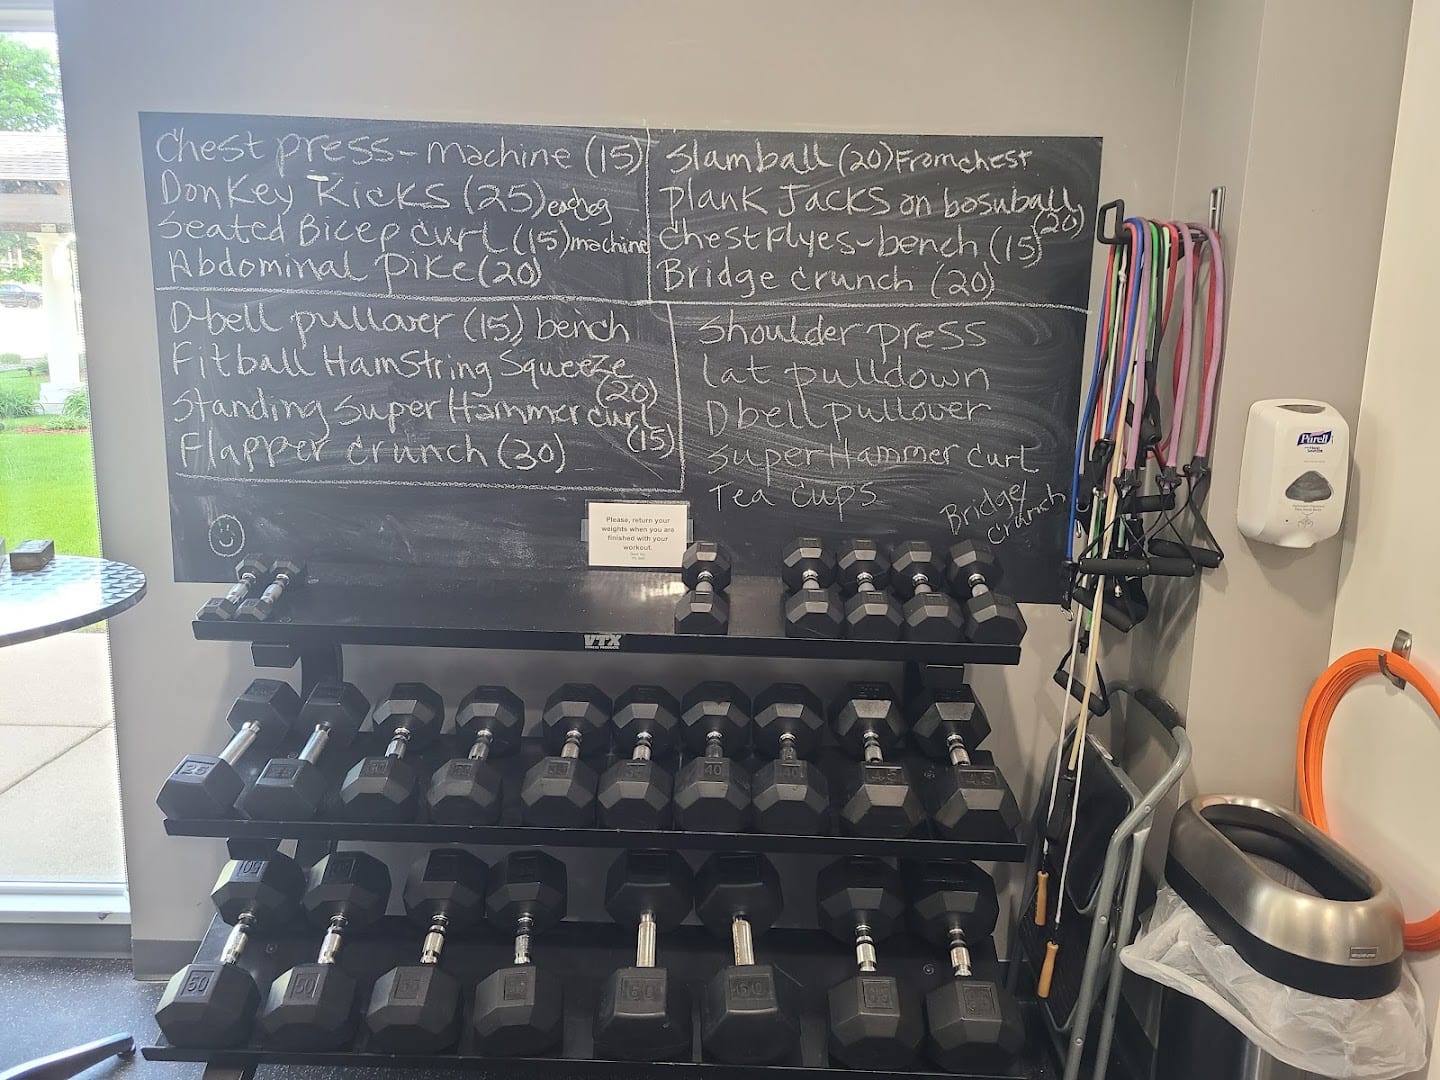 Chest press - machine (15)
Donkey Kicks (25) each leg
Seated Bicep curl (15) machine
Abdominal pike (20)
Slamball (20) From chest
Plank Jacks on bosuball
(20)
Chest Flyes - bench (15)
Bridge crunch (20)
D-bell pullover (15) bench
Fitball Hamstring Squeeze
(20)
Standing Super Hammer curl
(15)
Flapper crunch (30)
Shoulder press
lat pulldown
Dbell pullover
Super Hammer curl
Tea cups
Bridge/
crunch
Please, return your
weights when you are
finished with your
workout.
VTX
FITNESS PRODUCTS
Purell
25
40
40
45
45
50
50
50
60
60